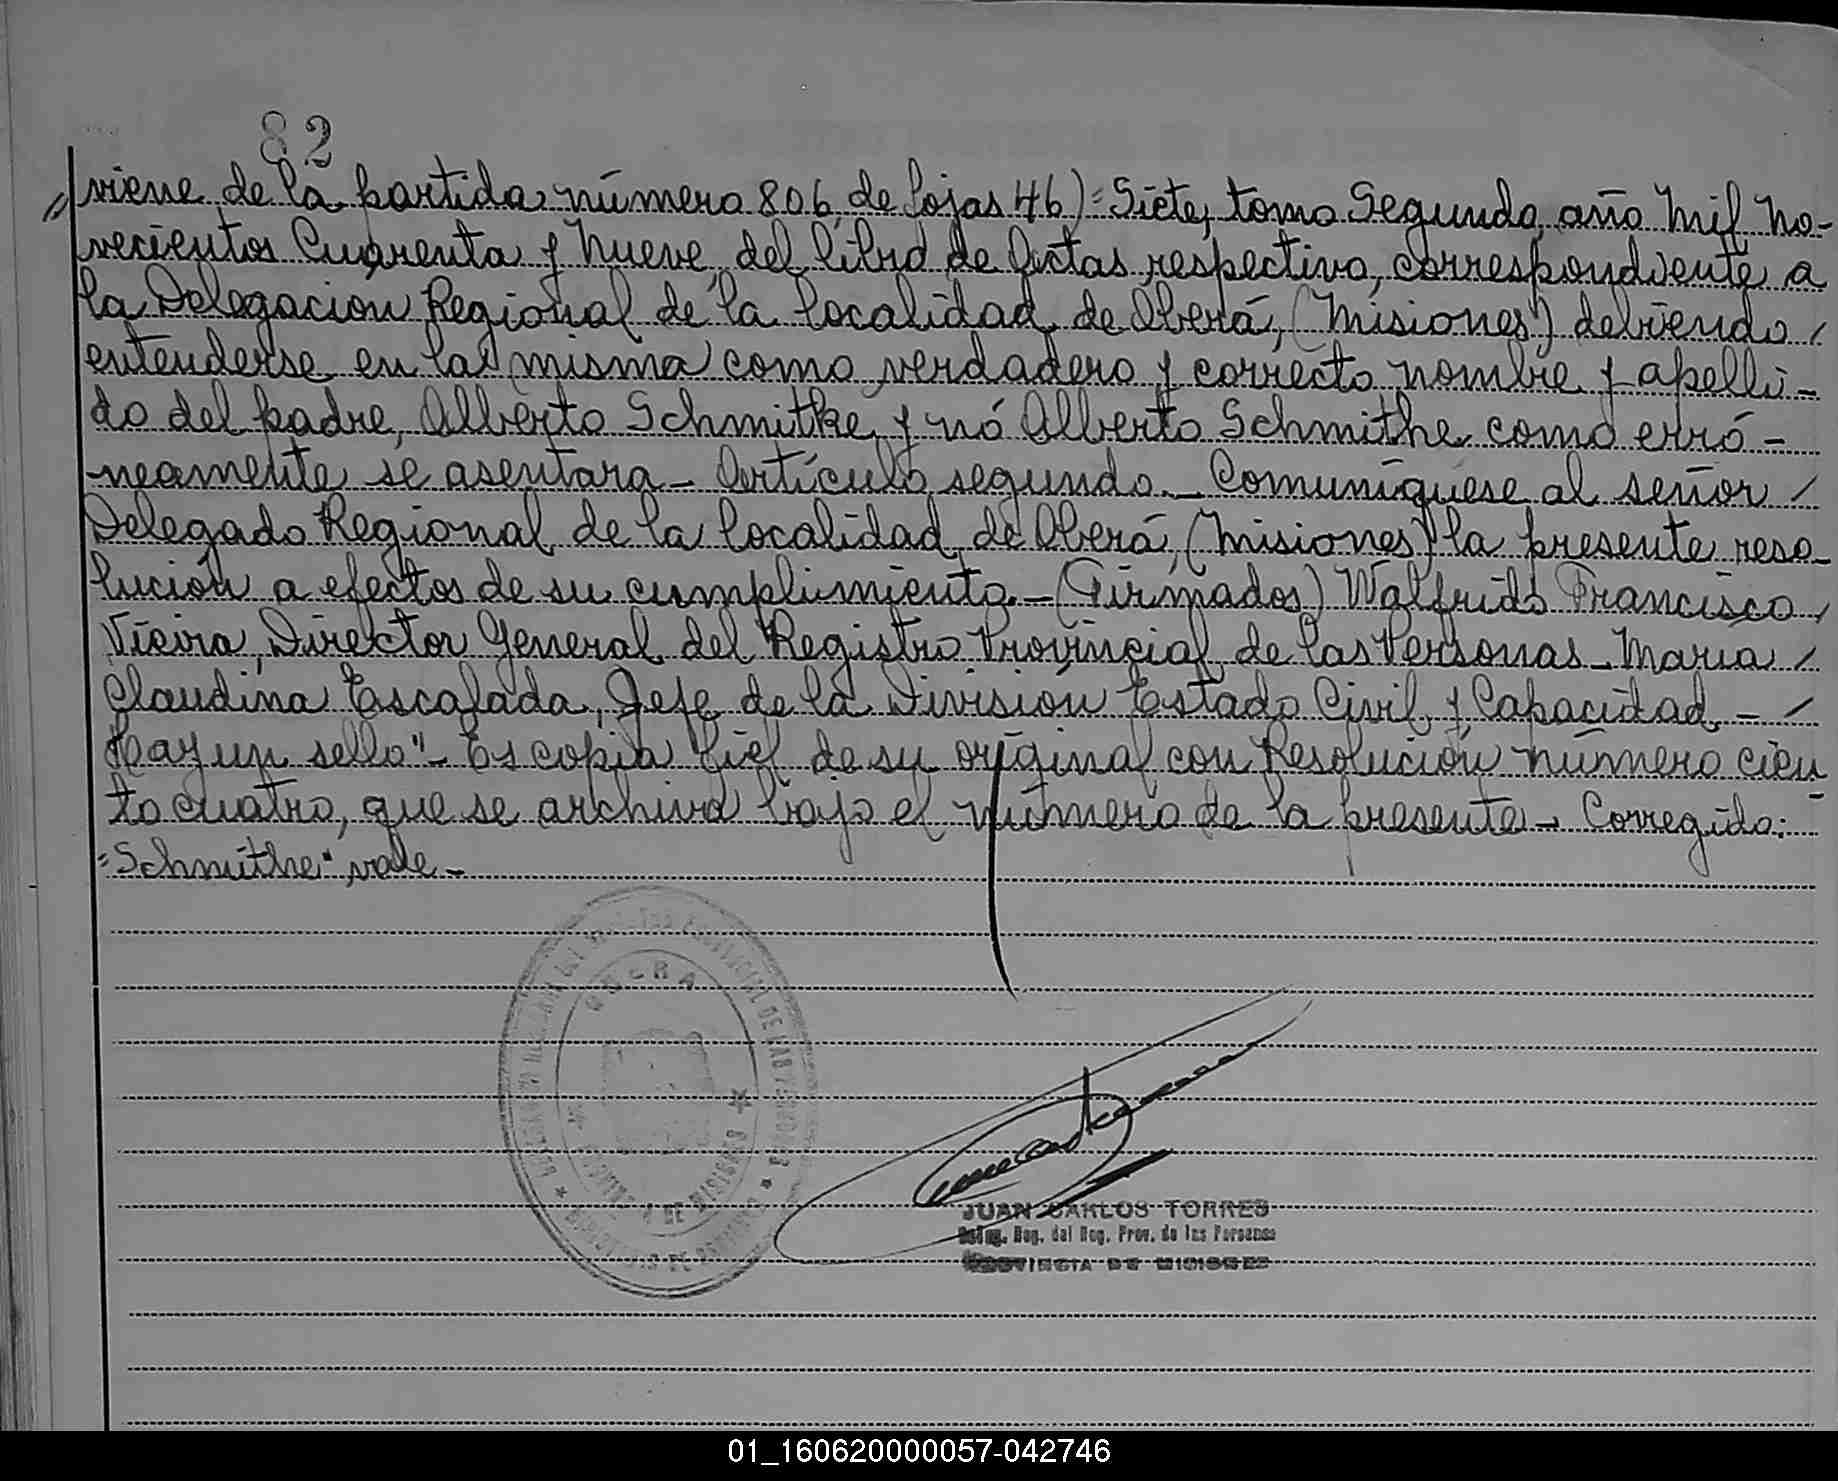 82
// viene de la partida número 806, de fojas 46) = Siete, tomo Segundo, año Mil No-
vecientos Cuarenta y Nueve, del libro de Actas respectivo, correspondiente a
la Delegación Regional de la localidad de Oberá, (Misiones) debiendo /
entenderse en la misma como verdadero y correcto nombre y apelli-
do del padre, Alberto Schmitke y nó Alberto Schmithe como erró-
neamente se asentara - Artículo segundo. - Comuníquese al señor /
Delegado Regional de la localidad de Oberá, (Misiones) la presente reso-
lución a efectos de su cumplimiento. - (Firmados) Walfrido Francisco /
Vieira, Director General del Registro Provincial de las Personas - María /
Claudina Escalada, Jefe de la División Estado Civil y Capacidad. - /
Hay un sello" - Es copia fiel de su original con Resolución número cien
to cuatro, que se archiva bajo el número de la presente - Corregido:
=Schmithe" vale -
JUAN CARLOS TORRES
Reg. del Reg. Prov. de las Personas
PROVINCIA DE MISIONES
01_160620000057-042746